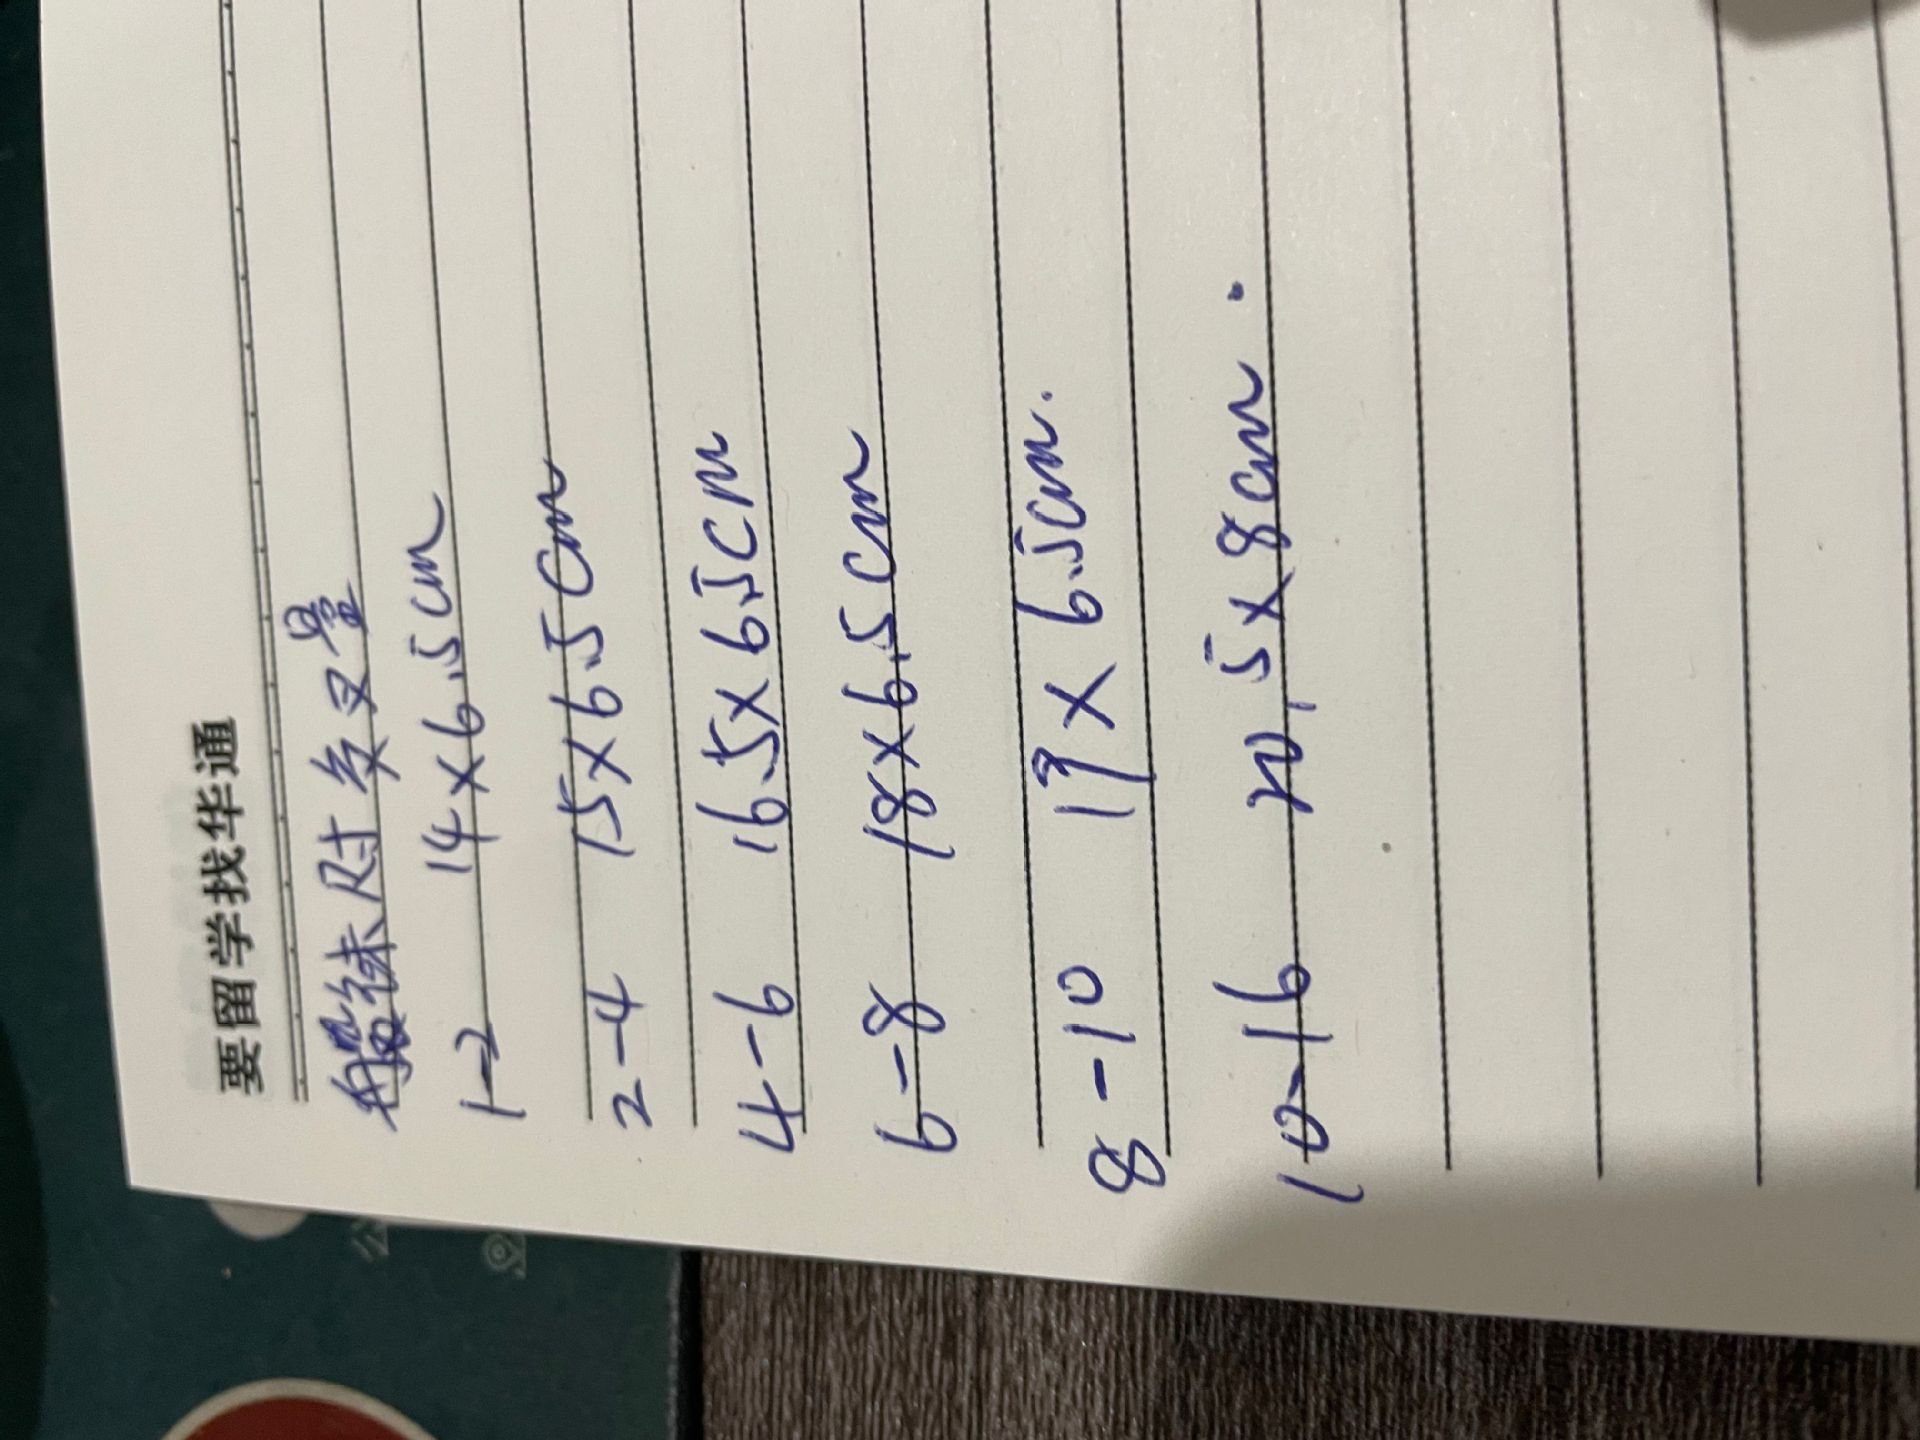 要留学找华通
船袜尺寸多双量
1-2 14×6.5cm
2-4 15×6.5cm
4-6 16.5×6.5cm
6-8 18×6.5cm
8-10 19×6.5cm.
10-16 21.5×8cm.
公